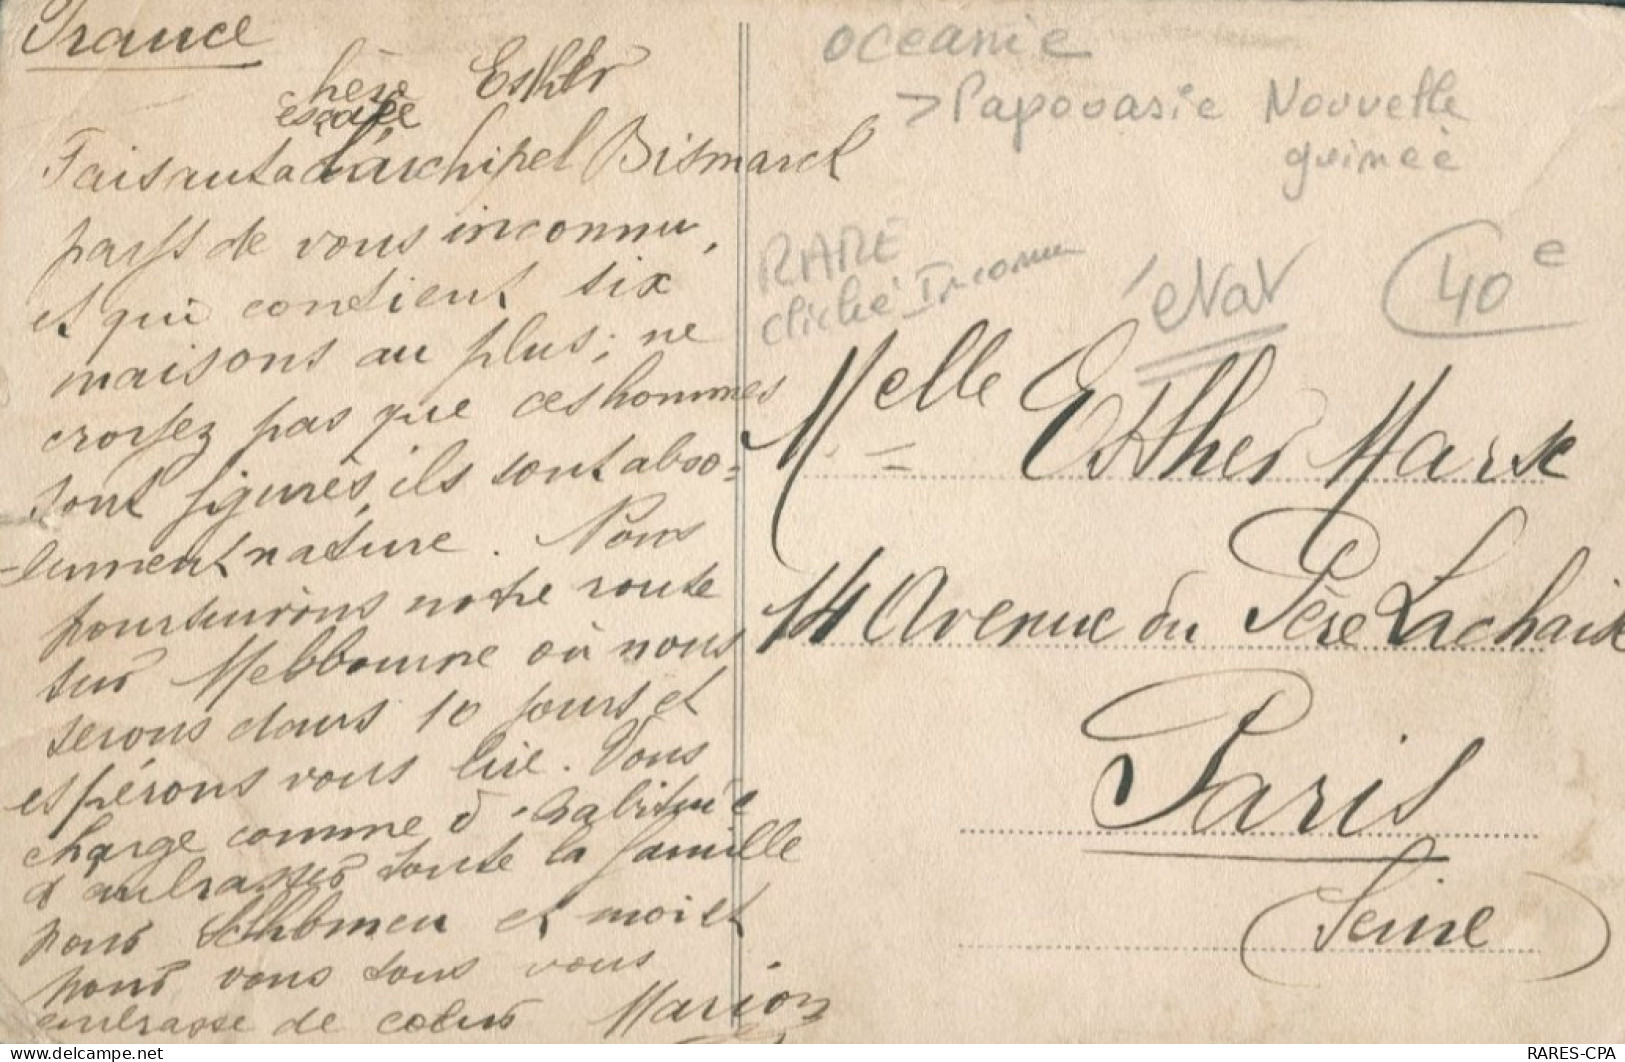 France
chère Esther
escale
Faisant à l'archipel Bismarck
pays de vous inconnu,
et qui contient six
maisons au plus; ne
croyez pas que ces hommes
sont figurés, ils sont abso=
-lument nature. Nous
poursuivons notre route
sur Melbourne où nous
serons dans 10 jours et
espérons vous lire. Vous
charge comme d'habitude
d'embrasser toute la famille
pour et moi et
pour vous tous vous
embrasse de cœur Marion
oceanie
> Papouasie Nouvelle
guinée
RARE
cliché Inconnu
40e
Melle Esther Marx
14 Avenue du Père Lachaise
Paris
(Seine)
RARES-CPA